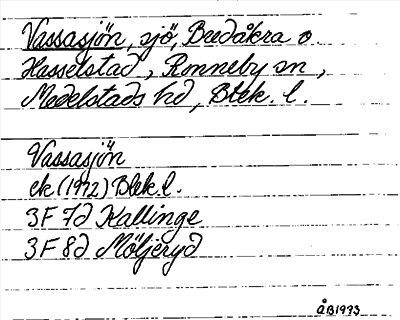 Vassasjön, sjö, Bredåkra o.
Hasselstad, Ronneby sn,
Medelstads hd, Blek. l.
Vassasjön
ek (1972) Blek. l.
3F 7d Kallinge
3F 8d Möljeryd
ÅB1973